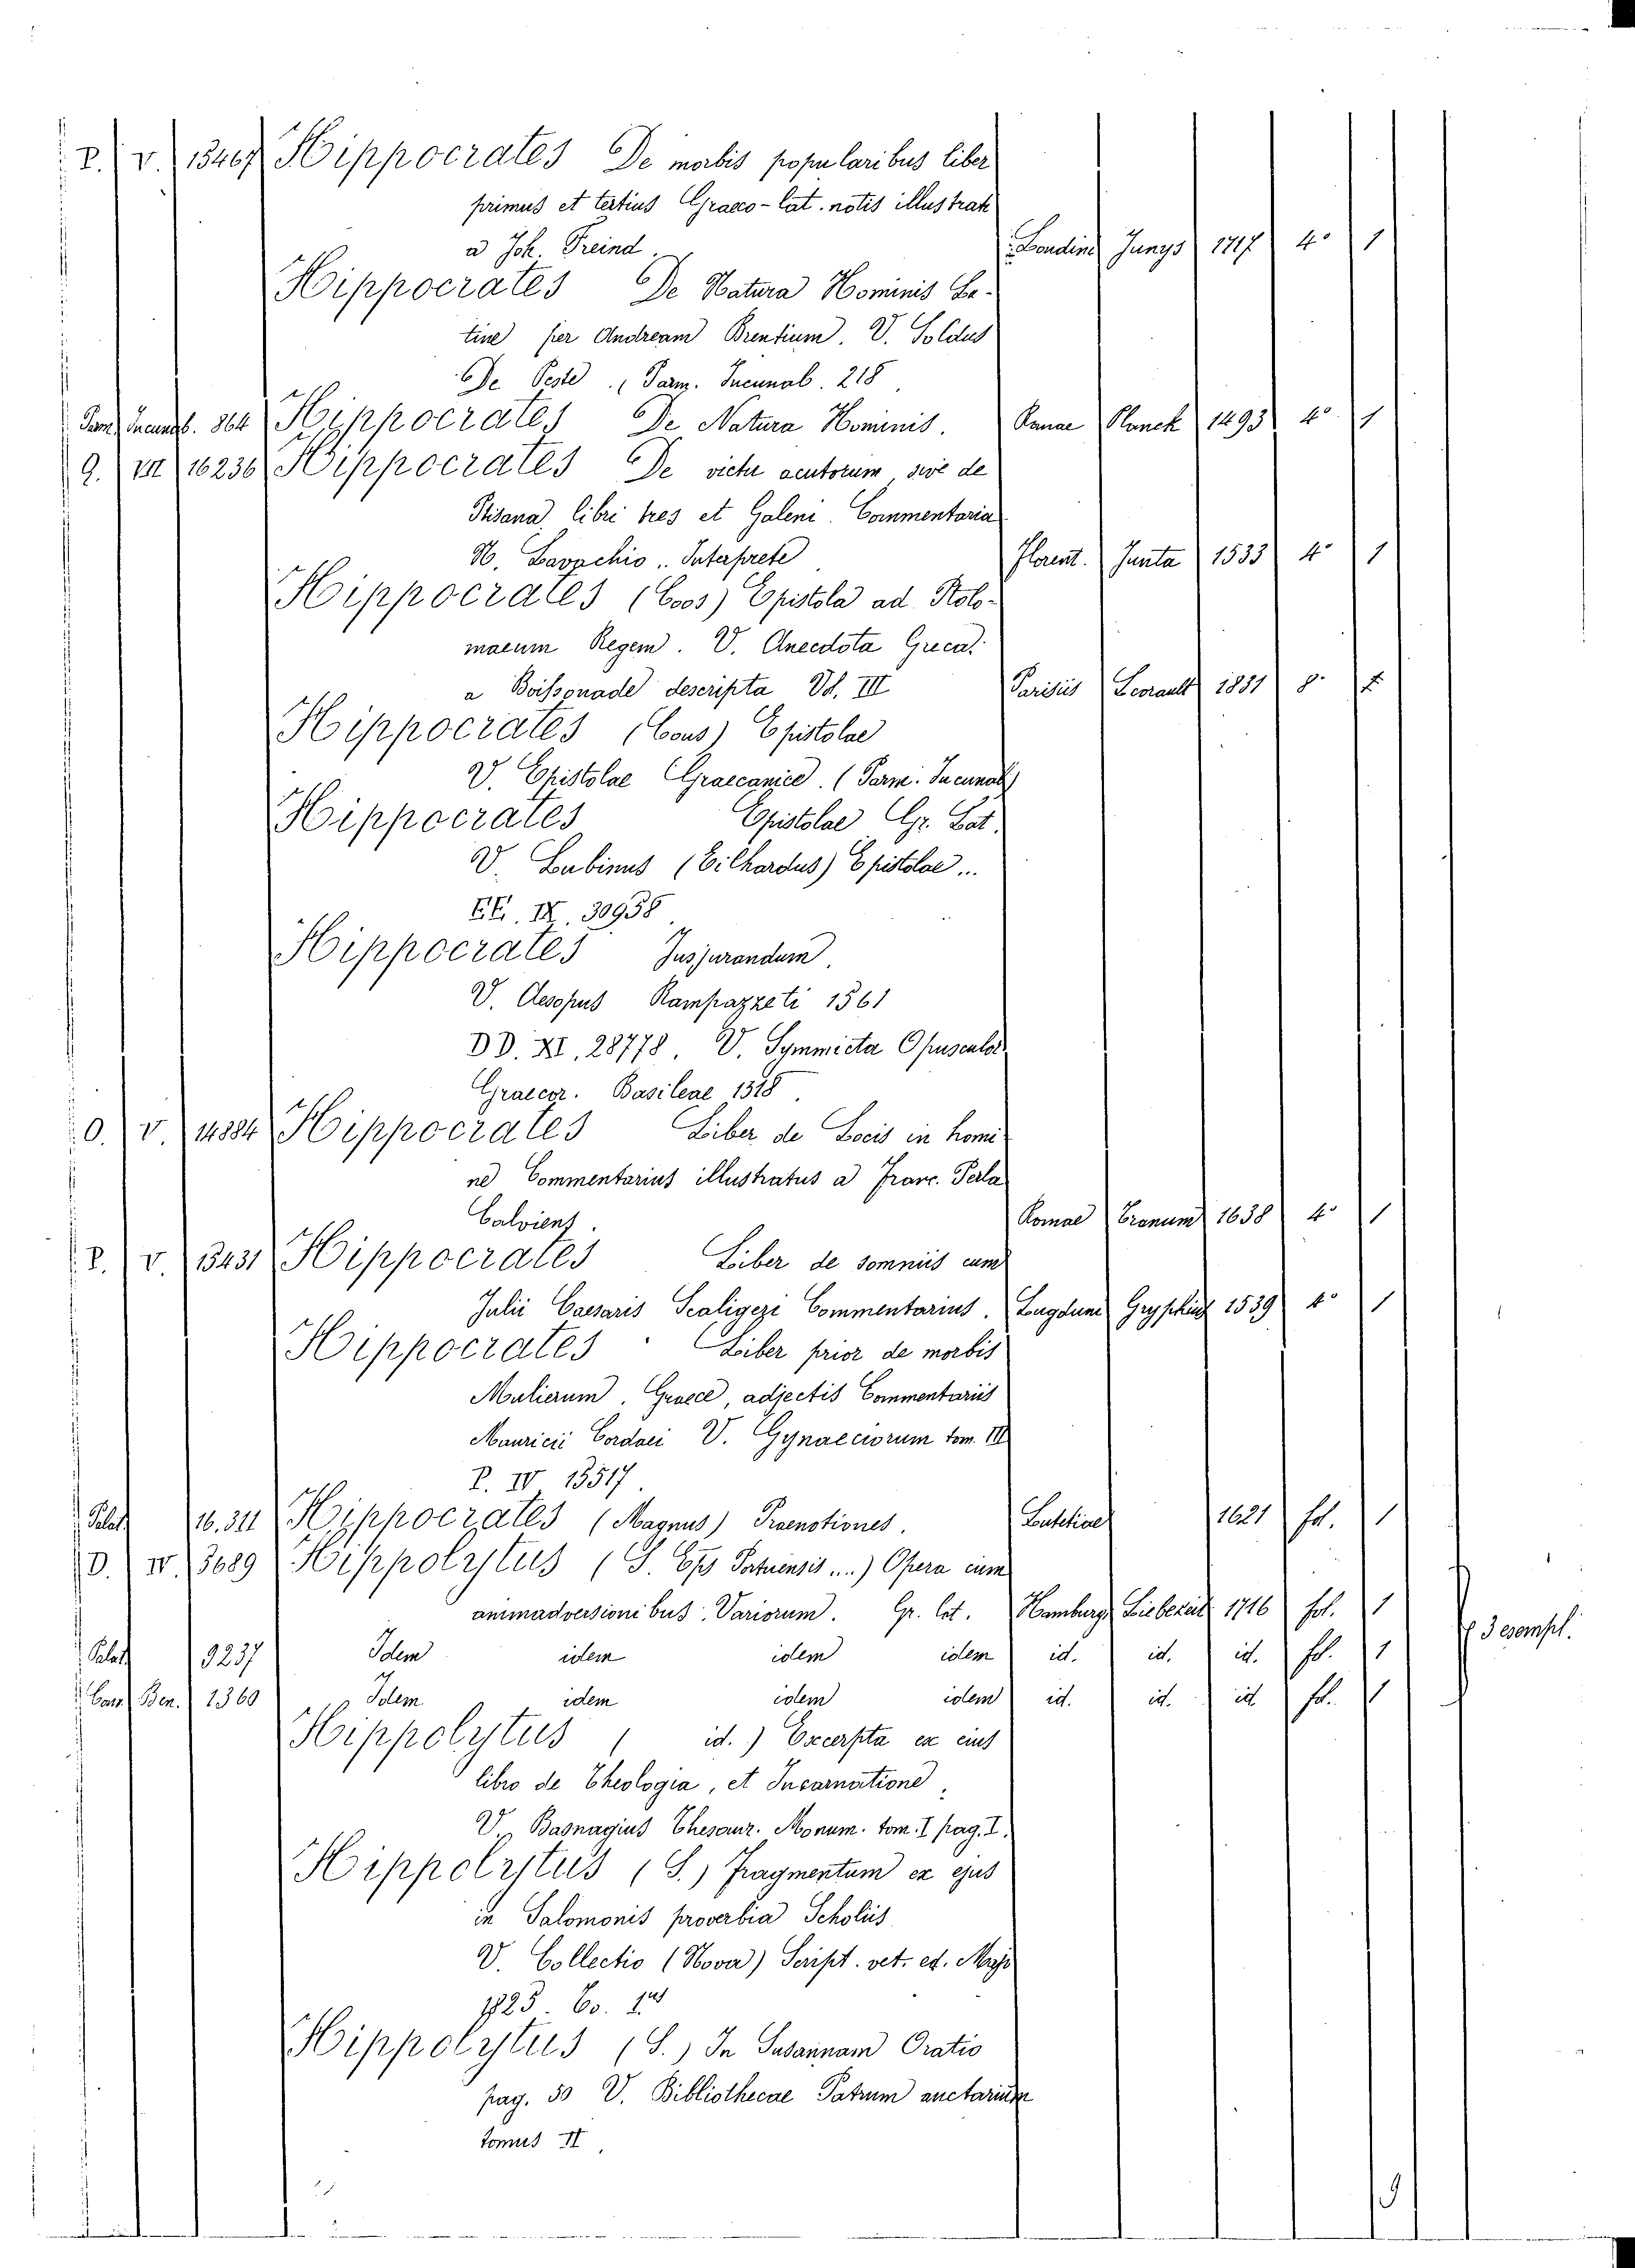 P. V. 13467 Hippocrates De morbis popularibus liber
primus et tertius Graeco-lat. notis illustrati
a Joh. Freind. Londini Junys 1717 4° 1
Hippocrates De Natura Hominis La-
tine per Andream Brentium. V. Soldus
De Peste. (Parm. Incunab. 218
Parm. Incunab. 864 Hippocrates De Natura Hominis. Romae Planck 1493 4° 1
Q. VII 16236 Hippocrates De victu acutorum, sive de
Ptisana libri tres et Galeni Commentaria
N. Lavachio.. Interprete Florent. Junta 1533 4° 1
Hippocrates (Coos) Epistola ad Ptolo-
maeum Regem. V. Anecdota Greca.
a Boissonade descripta Vol. III Parisiis Levrault 1831 8°
Hippocrates (Cous) Epistolae
V. Epistolae Graecanice. (Parm. Incunab)
Hippocrates Epistolae Gr. Lat.
V. Lubinus (Eilhardus) Epistolae...
EE. IX. 30958
Hippocrates Jusjurandum.
V. Aesopus Rampazzeti 1561
DD. XI. 28778. V. Symmicta Opuscula
Graecor. Basileae 1518.
O. V. 14884 Hippocrates Liber de Locis in homi-
ne Commentarius illustratus a Franc. Perla
Calviens. Romae Granum 1638 4° 1
P. V. 13431 Hippocrates Liber de somniis cum
Julii Caesaris Scaligeri Commentarius. Lugduni Gryphius 1539 4° 1
Hippocrates Liber prior de morbis
Mulierum. Graece, adjectis Commentariis
Mauricii Cordaei V. Gynaeciorum tom. III
P. IV 13517.
Palat. 16.311 Hippocrates (Magnus) Praenotiones. Lutetiae 1621 fol. 1
D. IV. 3689 Hippolytus (S. Eps Portuensis...) Opera cum
animadversionibus Variorum. Gr. lat. Hamburg Liebezeit 1716 fol. 1
Palat 9237 Idem idem idem idem id. id. id. fol. 1
Ben. 1360 Idem idem idem idem id. id. id fol. 1
3 esempl.
Hippolytus ( id. ) Excerpta ex eius
libro de Theologia, et Incarnatione.
V. Basnagius Thesaur. Monum. tom. I pag. I.
Hippolytus (S.) Fragmentum ex ejus
in Salomonis proverbia Scholiis
V. Collectio (Nova) Script. vet. ed. Majo
1825. Co. 1
Hippolytus (S.) In Susannam Oratio
pag. 50 V. Bibliothecae Patrum auctarium
tomus II.
9